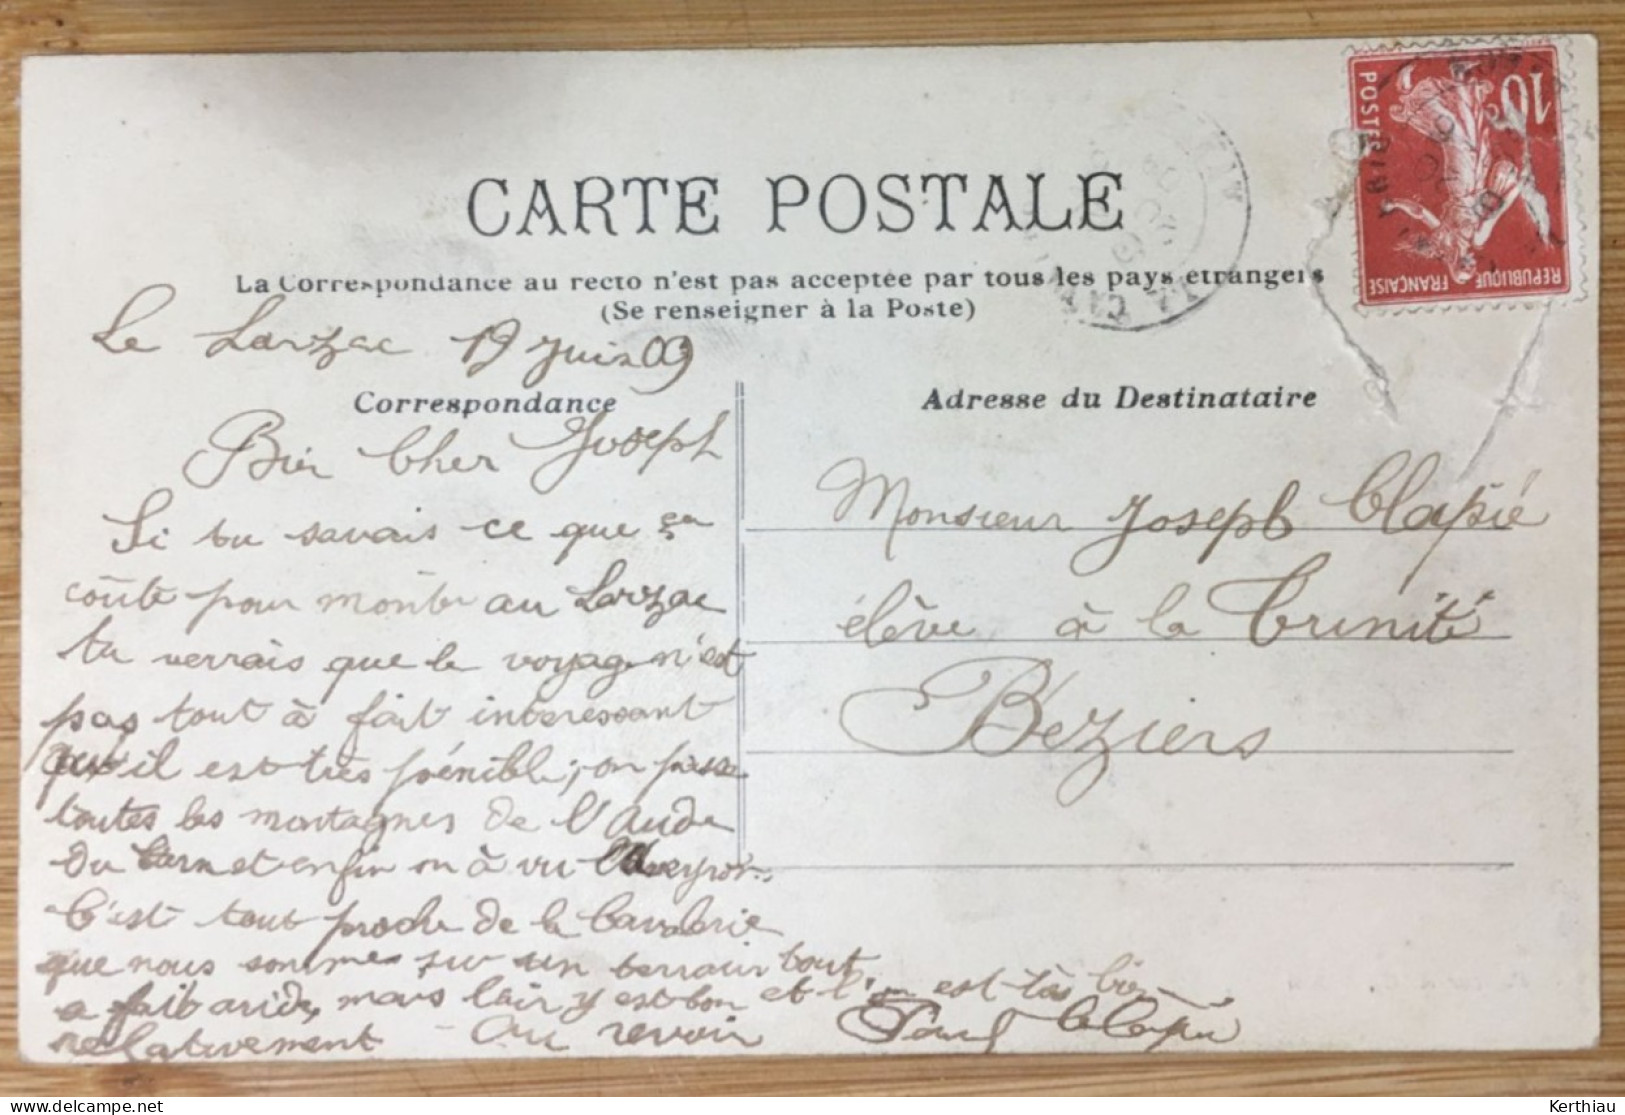 CARTE POSTALE
La Correspondance au recto n'est pas acceptée par tous les pays etrangers
(Se renseigner à la Poste)
Le Larzac 19 Juin 09
Correspondance
Bien Cher Joseph
Si tu savais ce que ça
coûte pour monter au Larzac
tu verrais que le voyage n'est
pas tout à fait interessant
qu'il est très pénible; on passe
toutes les montagnes de l'Aude
du Tarn et enfin on à vu l'Aveyron.
C'est tout proche de la Cavalerie
que nous sommes sur un terrain tout
a fait aride, mais l'air y est bon et l'on est très bien
relativement - Au revoir Paul Clapié
Adresse du Destinataire
Monsieur Joseph Clapié
élève à la Trinité
Béziers
10c
POSTES
REPUBLIQUE
FRANÇAISE
LA CAV
Kerthiau